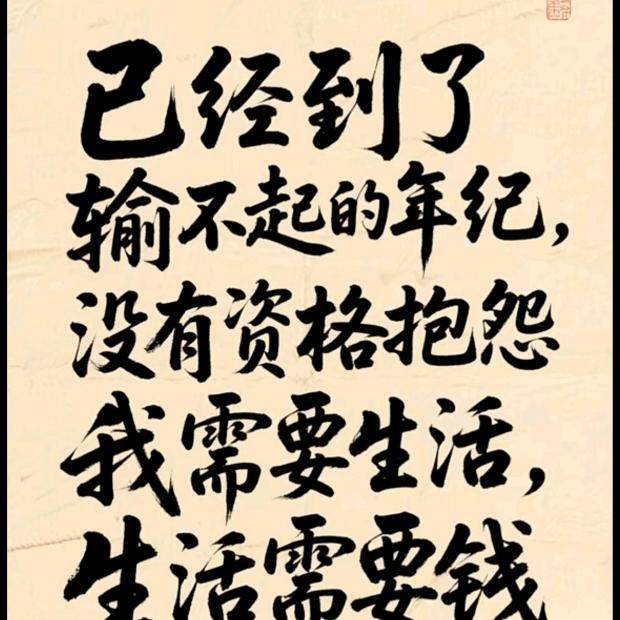 已经到了
输不起的年纪，
没有资格抱怨
我需要生活，
生活需要钱